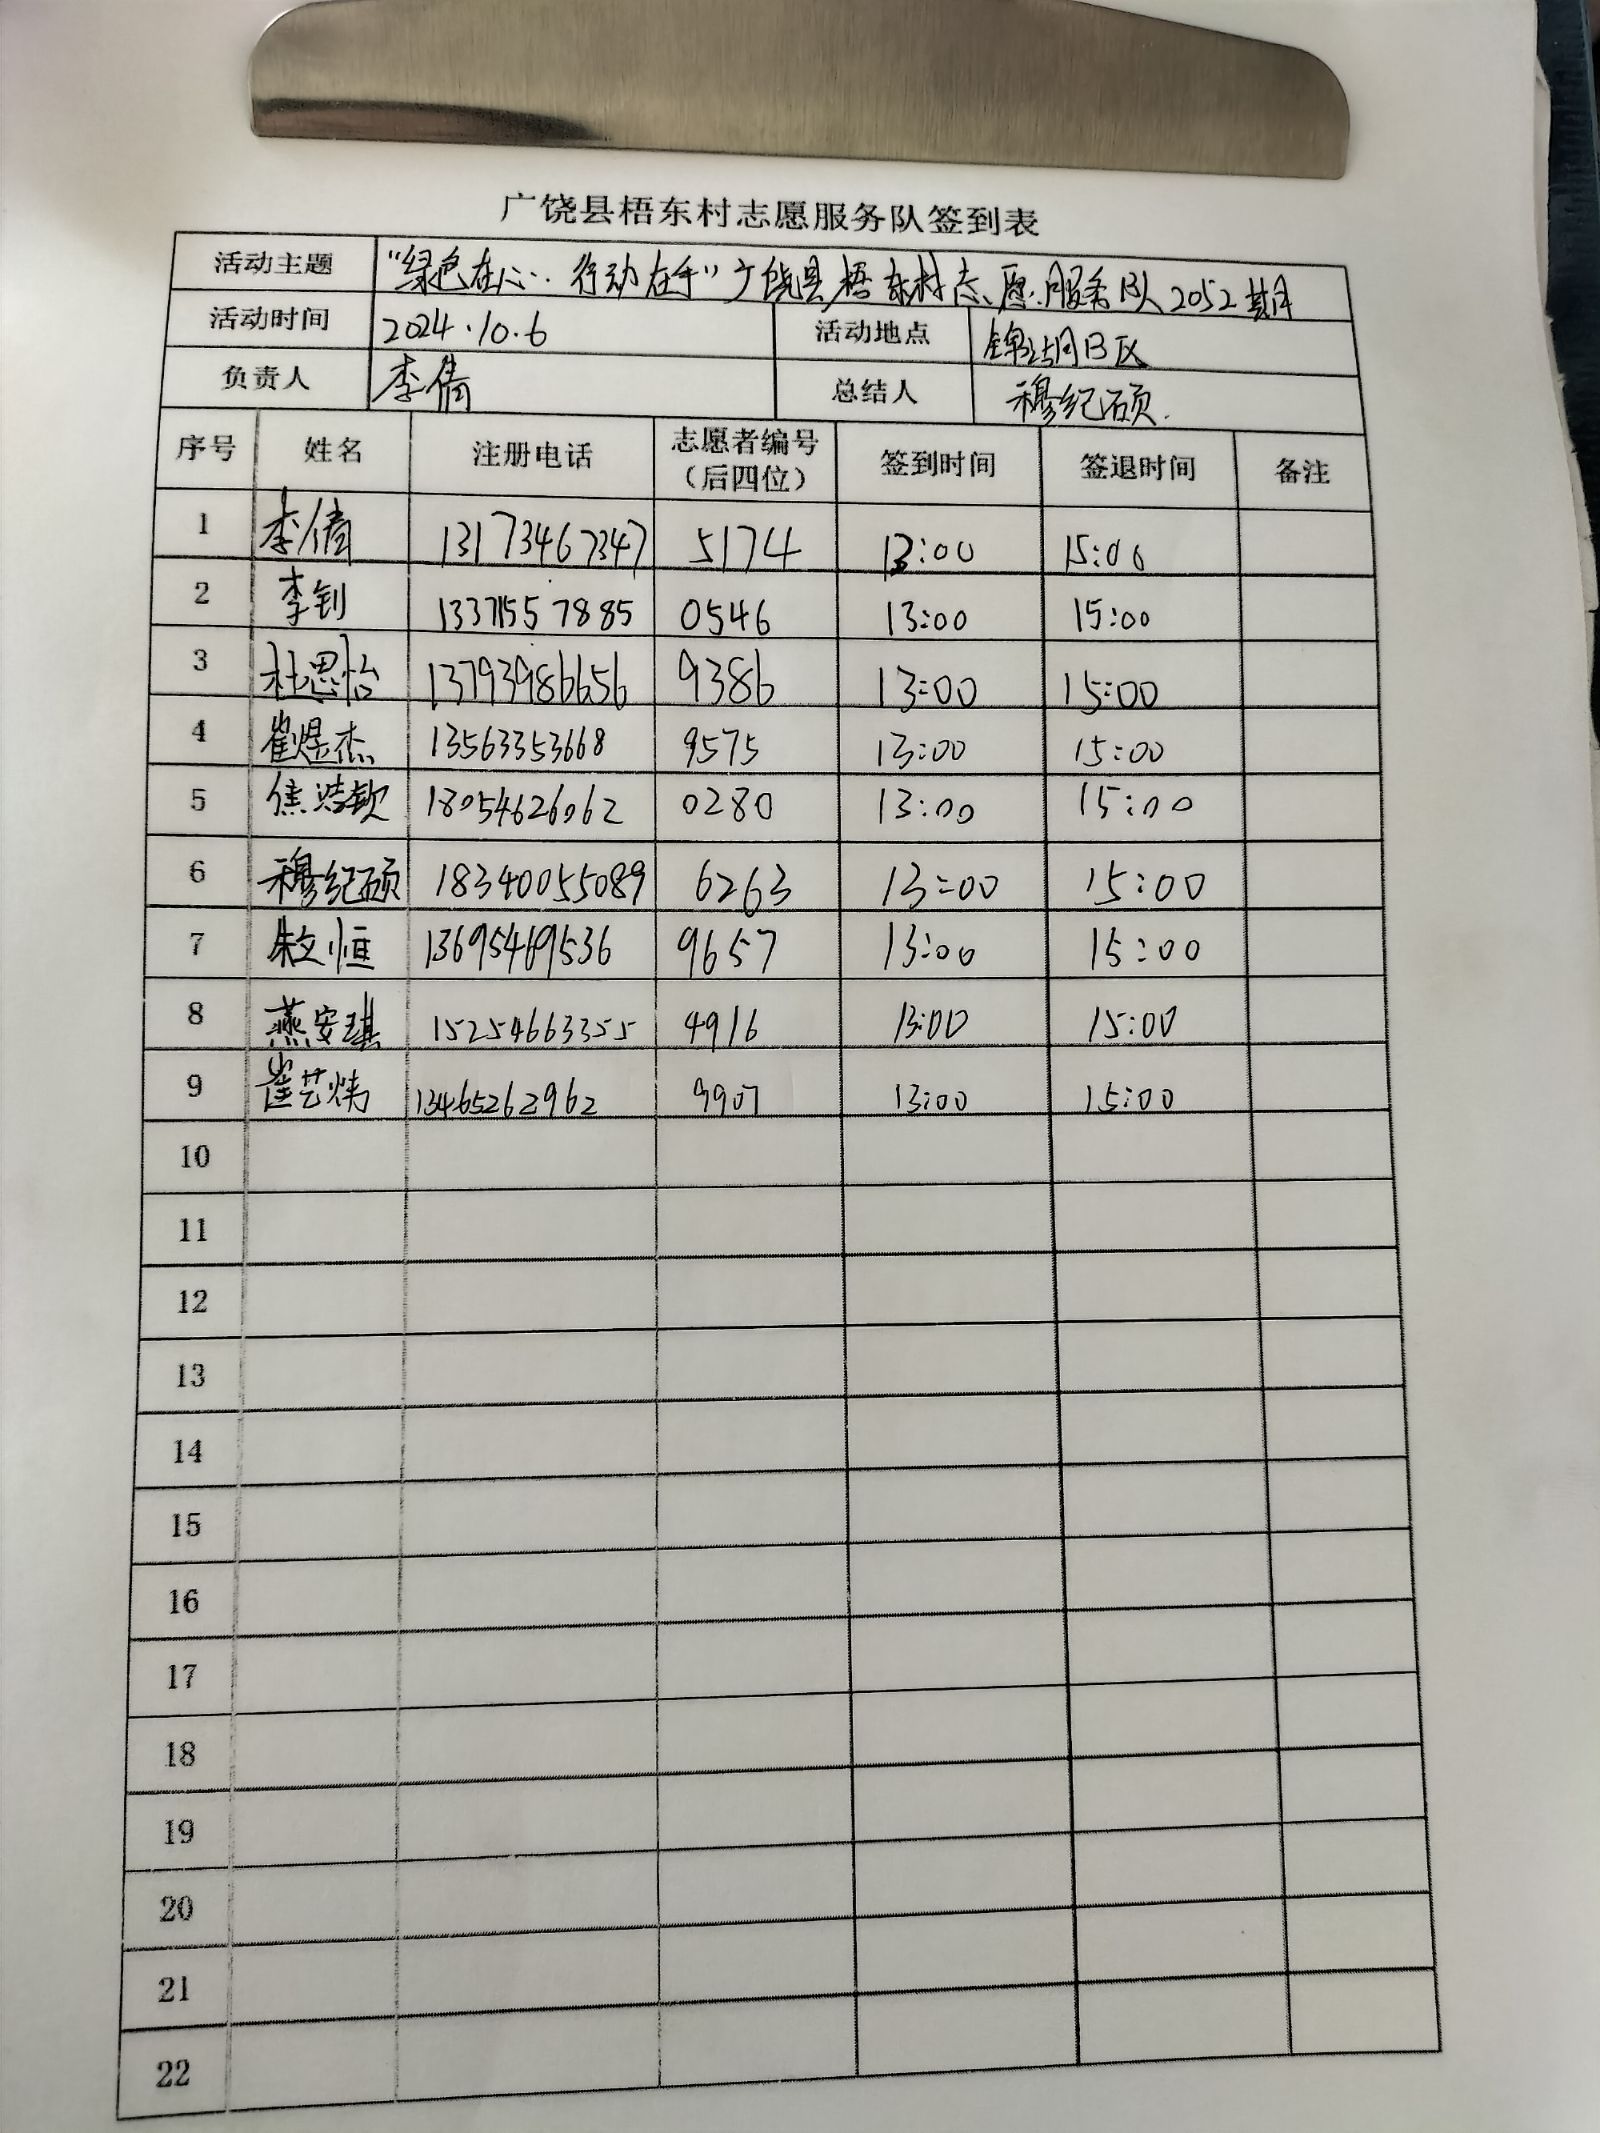 广饶县梧东村志愿服务队签到表
活动主题 “绿色在心·行动在手”广饶县梧东村志愿服务队2052期
活动时间 2024.10.6 活动地点 锦湖B区
负责人 李倩 总结人 穆纪硕
序号 姓名 注册电话 志愿者编号（后四位） 签到时间 签退时间 备注
1 李倩 13173467347 5174 13:00 15:00
2 李钊 13371557885 0546 13:00 15:00
3 杜思怡 13793986656 9386 13:00 15:00
4 崔煜杰 13563353668 9575 13:00 15:00
5 焦浩钦 18054626062 0280 13:00 15:00
6 穆纪硕 18340055089 6263 13:00 15:00
7 朱文恒 13695469536 9657 13:00 15:00
8 燕安琪 15254663355 4916 13:00 15:00
9 崔艺炜 13465262962 9907 13:00 15:00
10
11
12
13
14
15
16
17
18
19
20
21
22